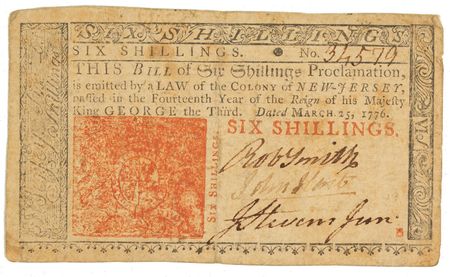 SIX SHILLINGS
SIX SHILLINGS. No. 34579
THIS Bill of Six Shillings Proclamation,
is emitted by a LAW of the COLONY of NEW-JERSEY,
passed in the Fourteenth Year of the Reign of his Majesty
King GEORGE the Third. Dated MARCH 25, 1776.
SIX SHILLINGS.
SIX SHILLINGS
Rob Smith
John
J Stevens Jun.